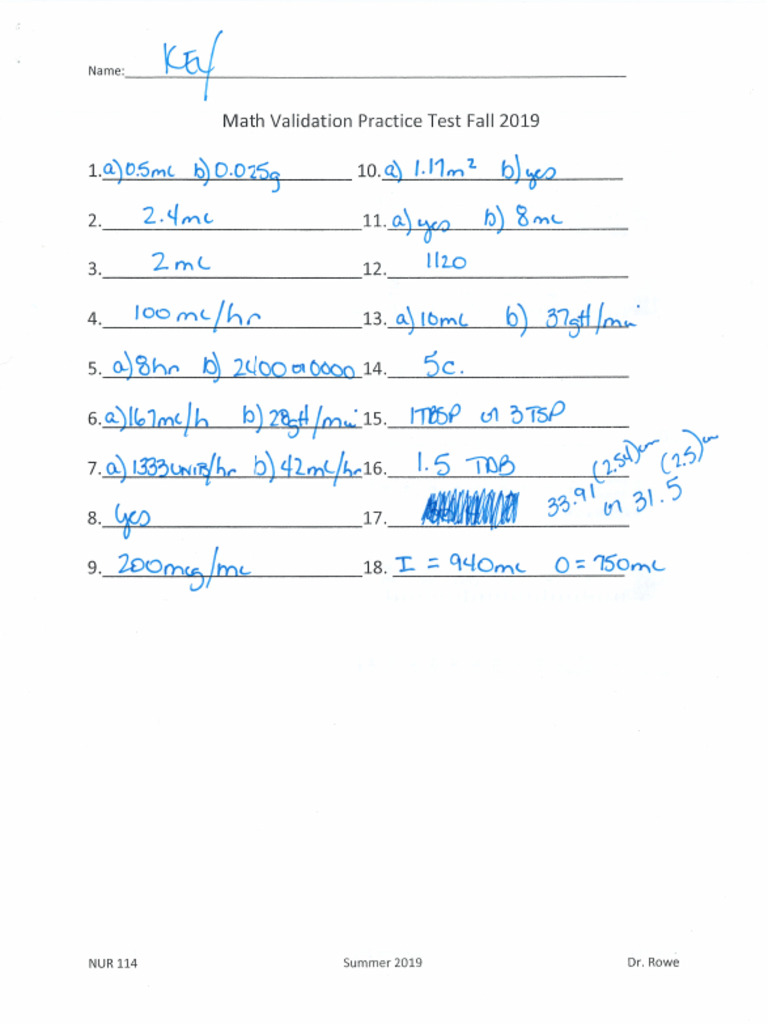 Name: KEY
Math Validation Practice Test Fall 2019
1. a) 0.5mL b) 0.025g 10. a) 1.17m² b) yes
2. 2.4mL 11. a) yes b) 8mL
3. 2mL 12. 1120
4. 100mL/hr 13. a) 10mL b) 37gtt/min
5. a) 8hr b) 2400 or 0000 14. 5c.
6. a) 167mL/h b) 28gtt/min 15. 1TBSP or 3TSP
7. a) 1333units/hr b) 42mL/hr 16. 1.5 TAB
(2.54)cm (2.5)cm
8. yes 17. 33.91 or 31.5
9. 200mcg/mL 18. I = 940mL O = 750mL
NUR 114 Summer 2019 Dr. Rowe